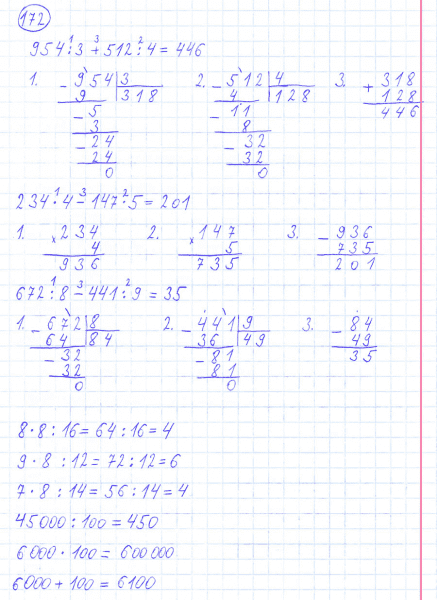 172
954 : 3 + 512 : 4 = 446
1 3 2
1. - 954 | 3 2. - 512 | 4 3. + 318
9 318 4 128 128
- 5 - 11 446
3 8
- 24 - 32
24 32
0 0
234 · 4 - 147 · 5 = 201
1 3 2
1. × 234 2. × 147 3. - 936
4 5 735
936 735 201
672 : 8 - 441 : 9 = 35
1 3 2
1. - 672 | 8 2. - 441 | 9 3. - 84
64 84 36 49 49
- 32 - 81 35
32 81
0 0
8 · 8 : 16 = 64 : 16 = 4
9 · 8 : 12 = 72 : 12 = 6
7 · 8 : 14 = 56 : 14 = 4
45000 : 100 = 450
6000 · 100 = 600 000
6000 + 100 = 6100